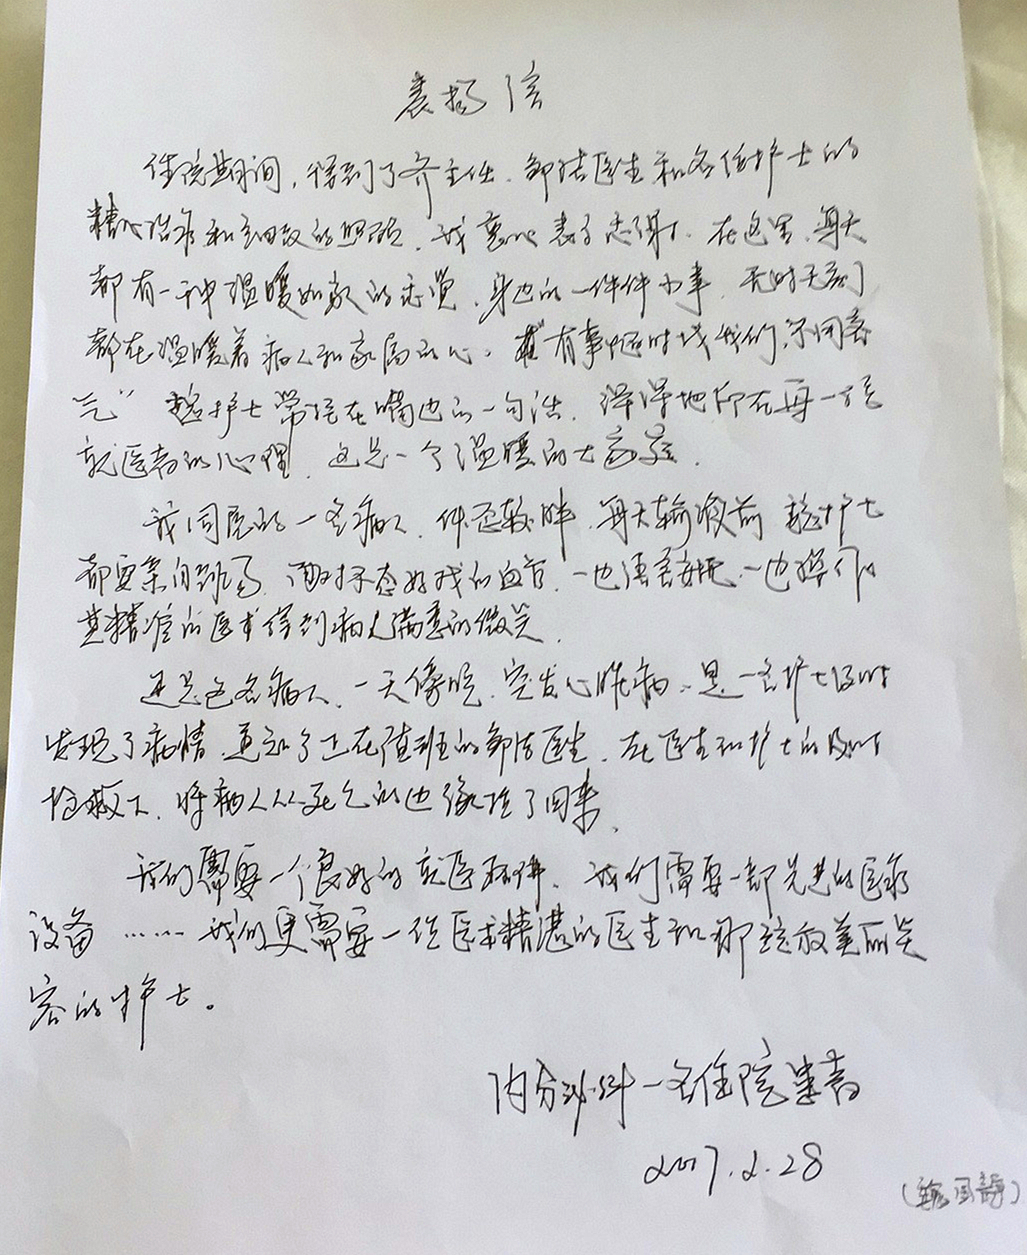 表扬信
住院期间，得到了齐主任、邹洁医生和各位护士的
精心治疗和细致的照顾，我衷心表示感谢。在这里，每天
都有一种温暖如家的感觉，身边的一件件小事，无时无刻
都在温暖着病人和家属的心。“有事随时找我们，不用客
气” 护士常挂在嘴边的一句话，深深地印在每一位
就医者的心理，这是一个温暖的大家庭。
我同屋的一名病人，体态较胖，每天输液前 护士
都要亲自 找的血管，一边 一边
其精准的医术得到病人满意的微笑。
还是这名病人，一天傍晚，突发心脏病，是一名护士及时
发现了病情，通知了正在值班的邹洁医生，在医生和护士的及时
抢救下，将病人从死亡的边缘拉了回来。
我们需要一个良好的就医环境，我们需要一部先进的医疗
设备……我们更需要一位医术精湛的医生和那绽放美丽笑
容的护士。
内分泌科一名住院患者
2017.2.28